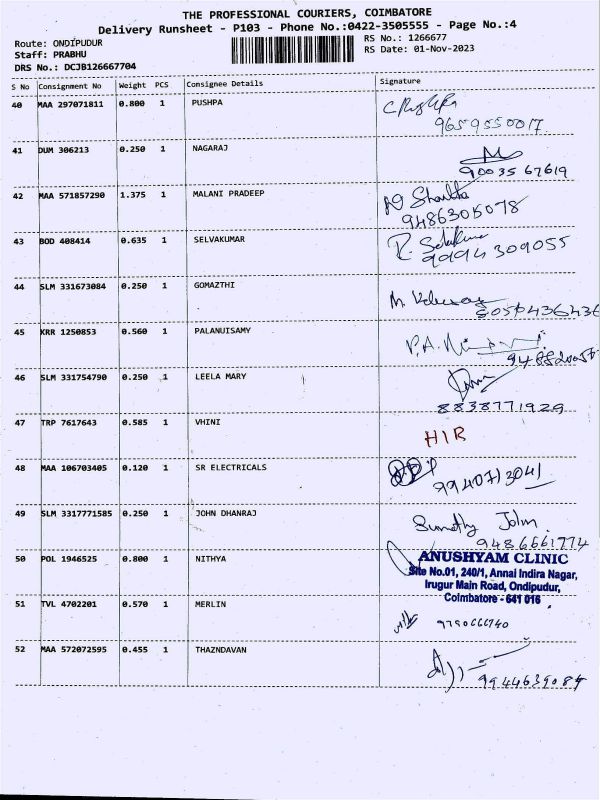 THE PROFESSIONAL COURIERS, COIMBATORE
Delivery Runsheet - P103 - Phone No.:0422-3505555 - Page No.:4
Route: ONDIPUDUR
RS No.: 1266677
Staff: PRABHU
RS Date: 01-Nov-2023
DRS No.: DCJB126667704
S No Consignment No Weight PCS Consignee Details Signature
40 MAA 297071811 0.800 1 PUSHPA
9659550017
41 DUM 306213 0.250 1 NAGARAJ
90035 67619
42 MAA 571857290 1.375 1 MALANI PRADEEP
9486305078
43 BOD 408414 0.635 1 SELVAKUMAR
9994309055
44 SLM 331673084 0.250 1 GOMAZTHI
45 KRR 1250853 0.560 1 PALANUISAMY
46 SLM 331754790 0.250 1 LEELA MARY
8838771929
47 TRP 7617643 0.585 1 VHINI
HIR
48 MAA 106703405 0.120 1 SR ELECTRICALS
9940713041
49 SLM 3317771585 0.250 1 JOHN DHANRAJ
John
9486661774
50 POL 1946525 0.800 1 NITHYA
ANUSHYAM CLINIC
Site No.01, 240/1, Annai Indira Nagar,
Irugur Main Road, Ondipudur,
Coimbatore - 641 016
51 TVL 4702201 0.570 1 MERLIN
9790666740
52 MAA 572072595 0.455 1 THAZNDAVAN
9944639084